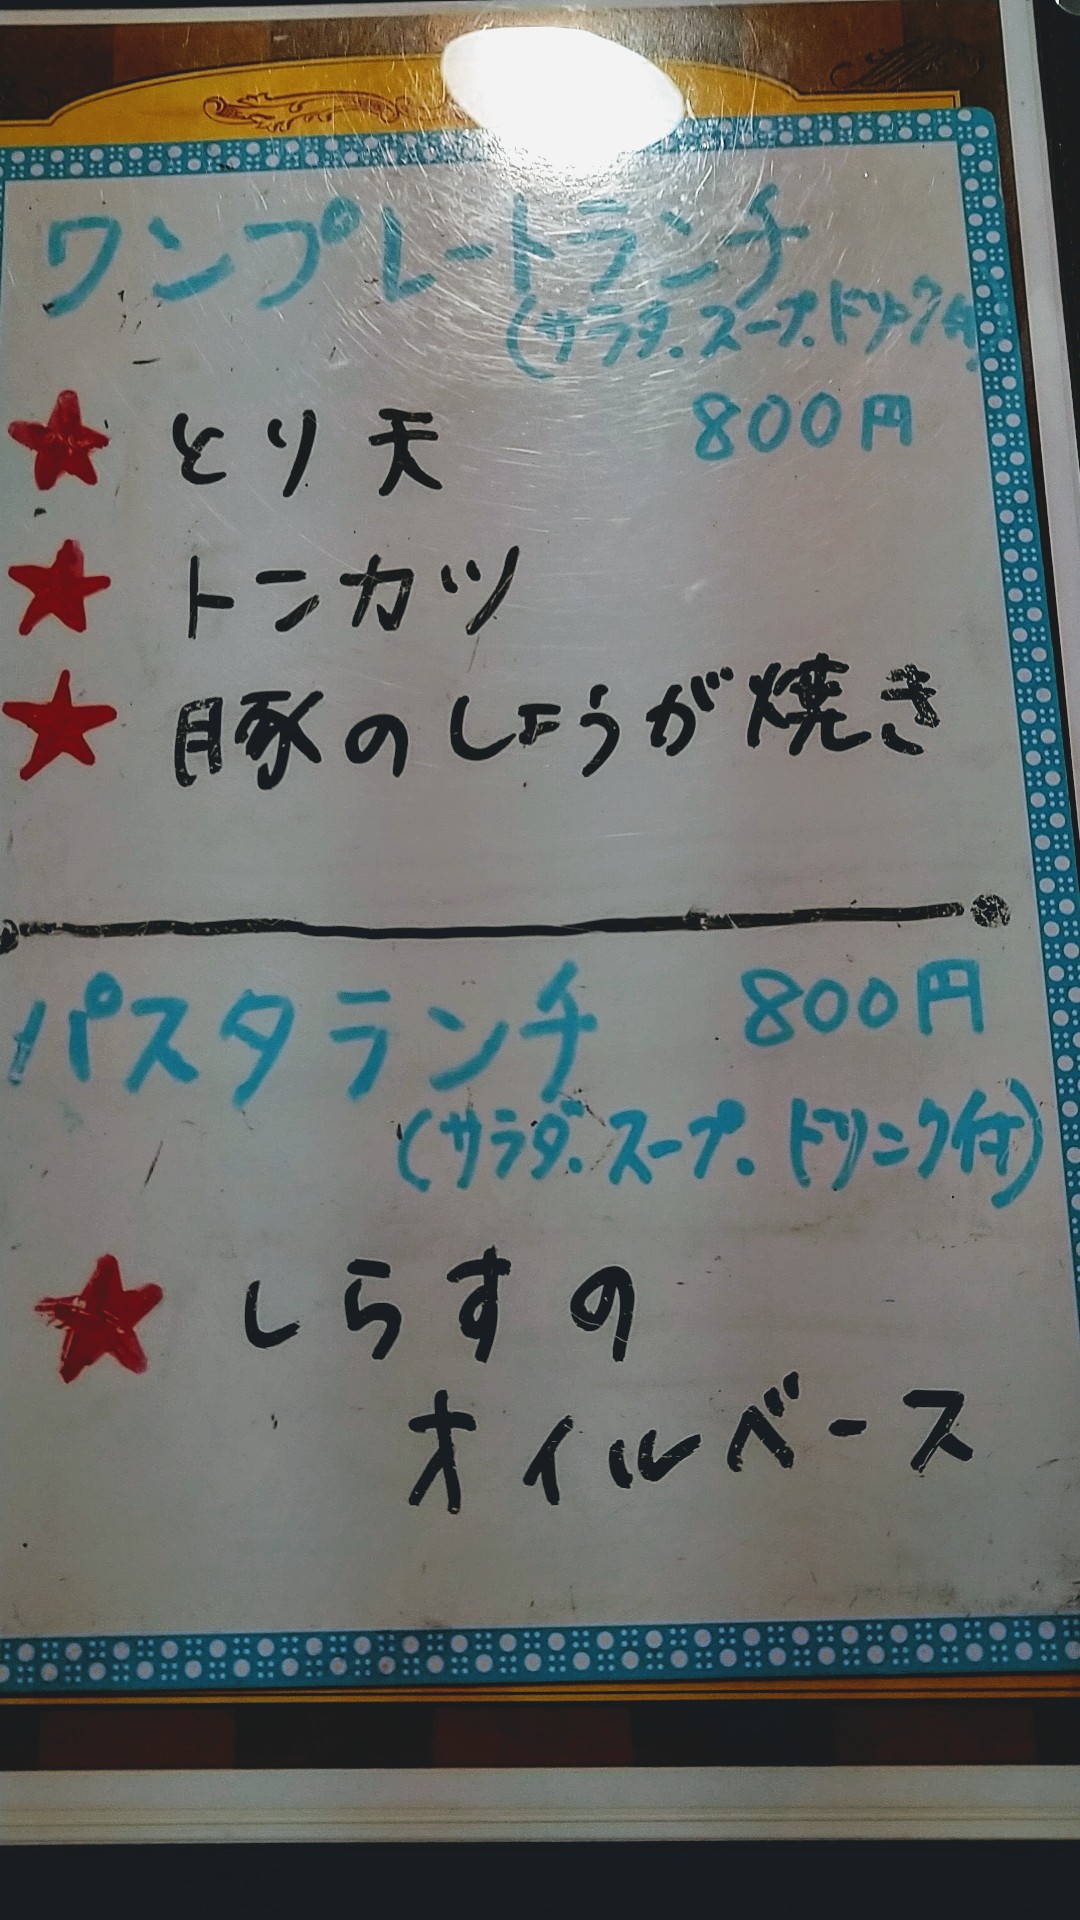 ワンプレートランチ
(サラダ.スープ.ドリンク付)
★ とり天 800円
★ トンカツ
★ 豚のしょうが焼き
パスタランチ 800円
(サラダ.スープ.ドリンク付)
★ しらすの
オイルベース